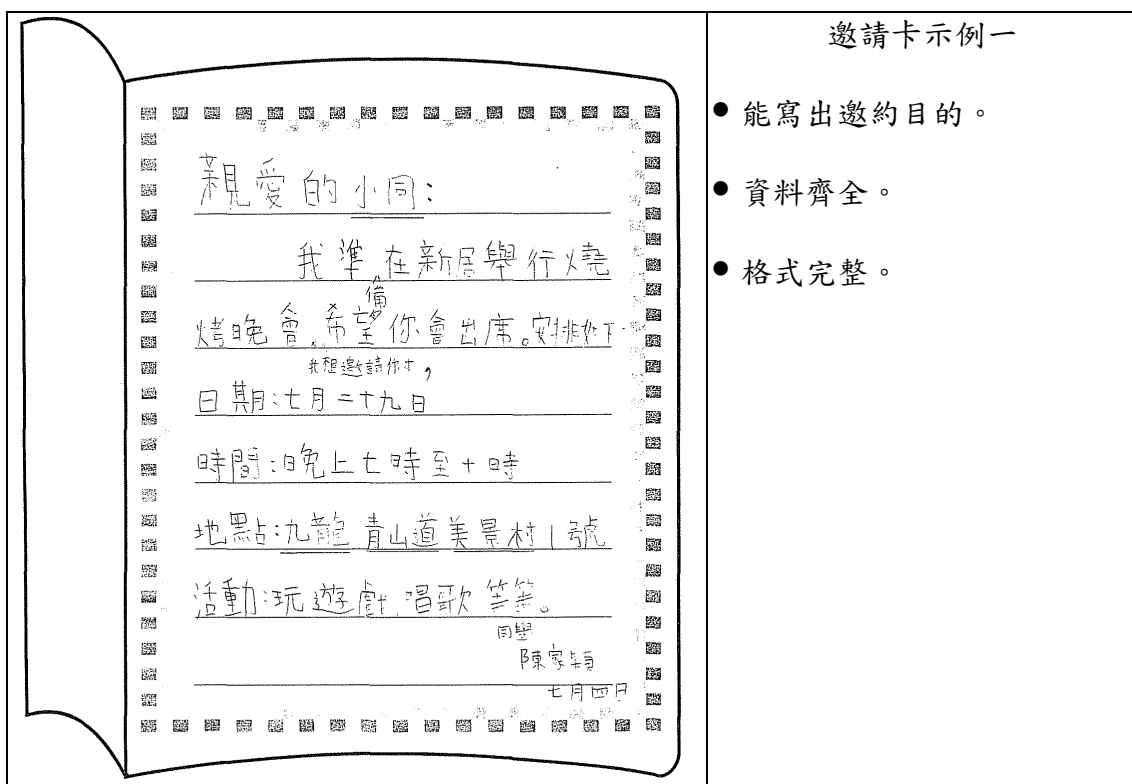 親愛的小同：
我準在新居舉行燒
備
烤晚會，希望你會出席。安排如下
我想邀請你才，
日期：七月二十九日
時間：晚上七時至十時
地點：九龍青山道美景村1號
活動：玩遊戲、唱歌等等。
同學
陳家穎
七月四日
邀請卡示例一
● 能寫出邀約目的。
● 資料齊全。
● 格式完整。